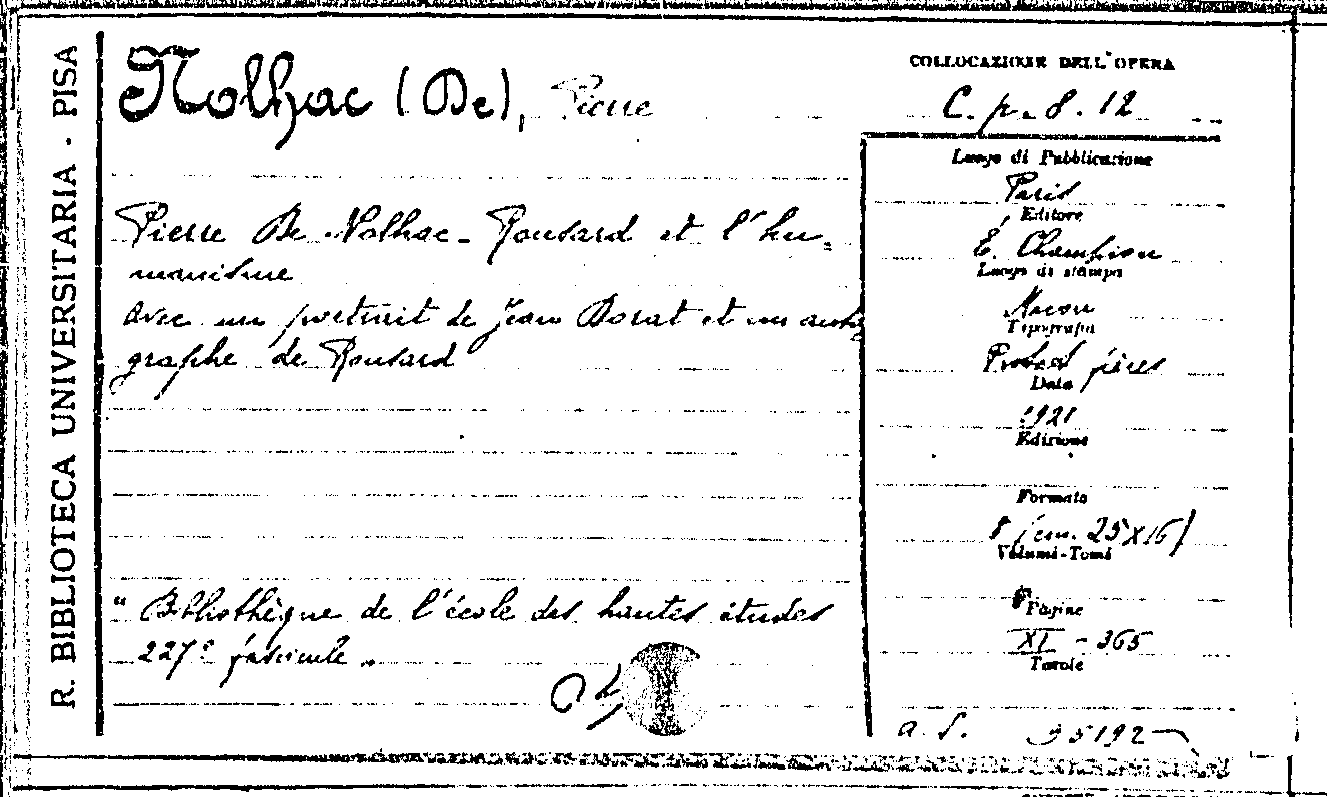 R. BIBLIOTECA UNIVERSITARIA - PISA
Nolhac (De), Pierre
Pierre De Nolhac - Ronsard et l'hu-
manisme
avec un portrait de Jean Dorat et un auto
graphe de Ronsard
"Bibliothèque de l'école des hautes études
227e fascicule"
COLLOCAZIONE DELL'OPERA
C. p. 8. 12
Luogo di Pubblicazione
Paris
Editore
É. Champion
Luogo di stampa
Macon
Tipografia
Protat frères
Data
1921
Edizione
Formato
8 (cm. 25x16)
Volumi-Tomi
Pagine
XI - 365
Tavole
a. S. 35192